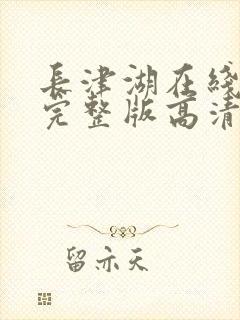 長津湖在綫
完整版高清
留亦天